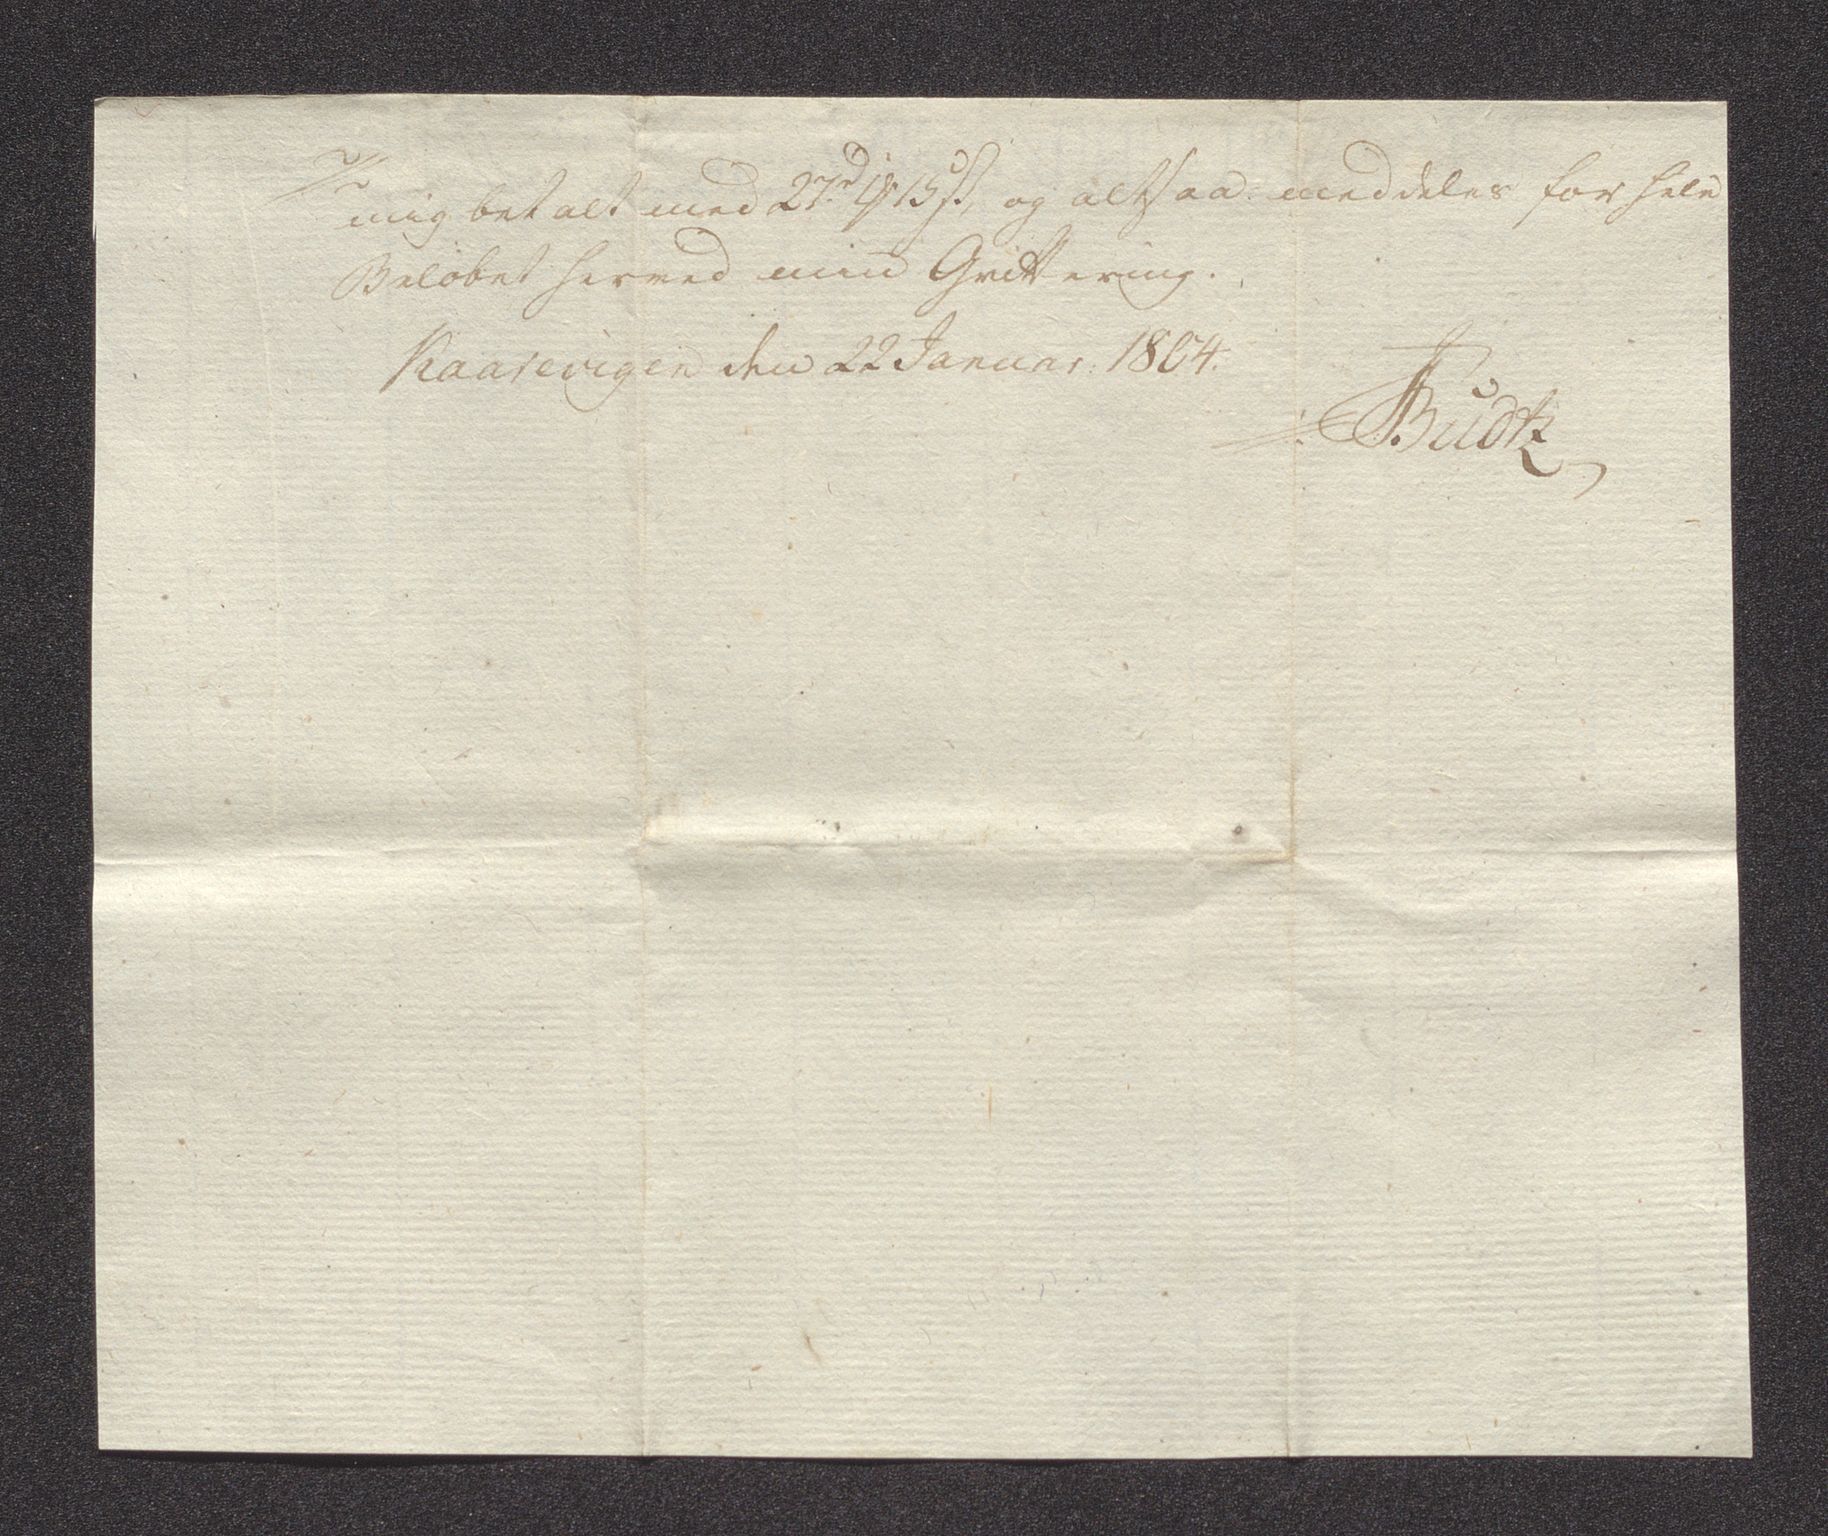 mig betalt med 27rd 1 ort 15 ß, og altsaa meddeles for hele
Beløbet herved min Qvittering.
Kaarevigen den 22 Januar: 1804.
Budtz